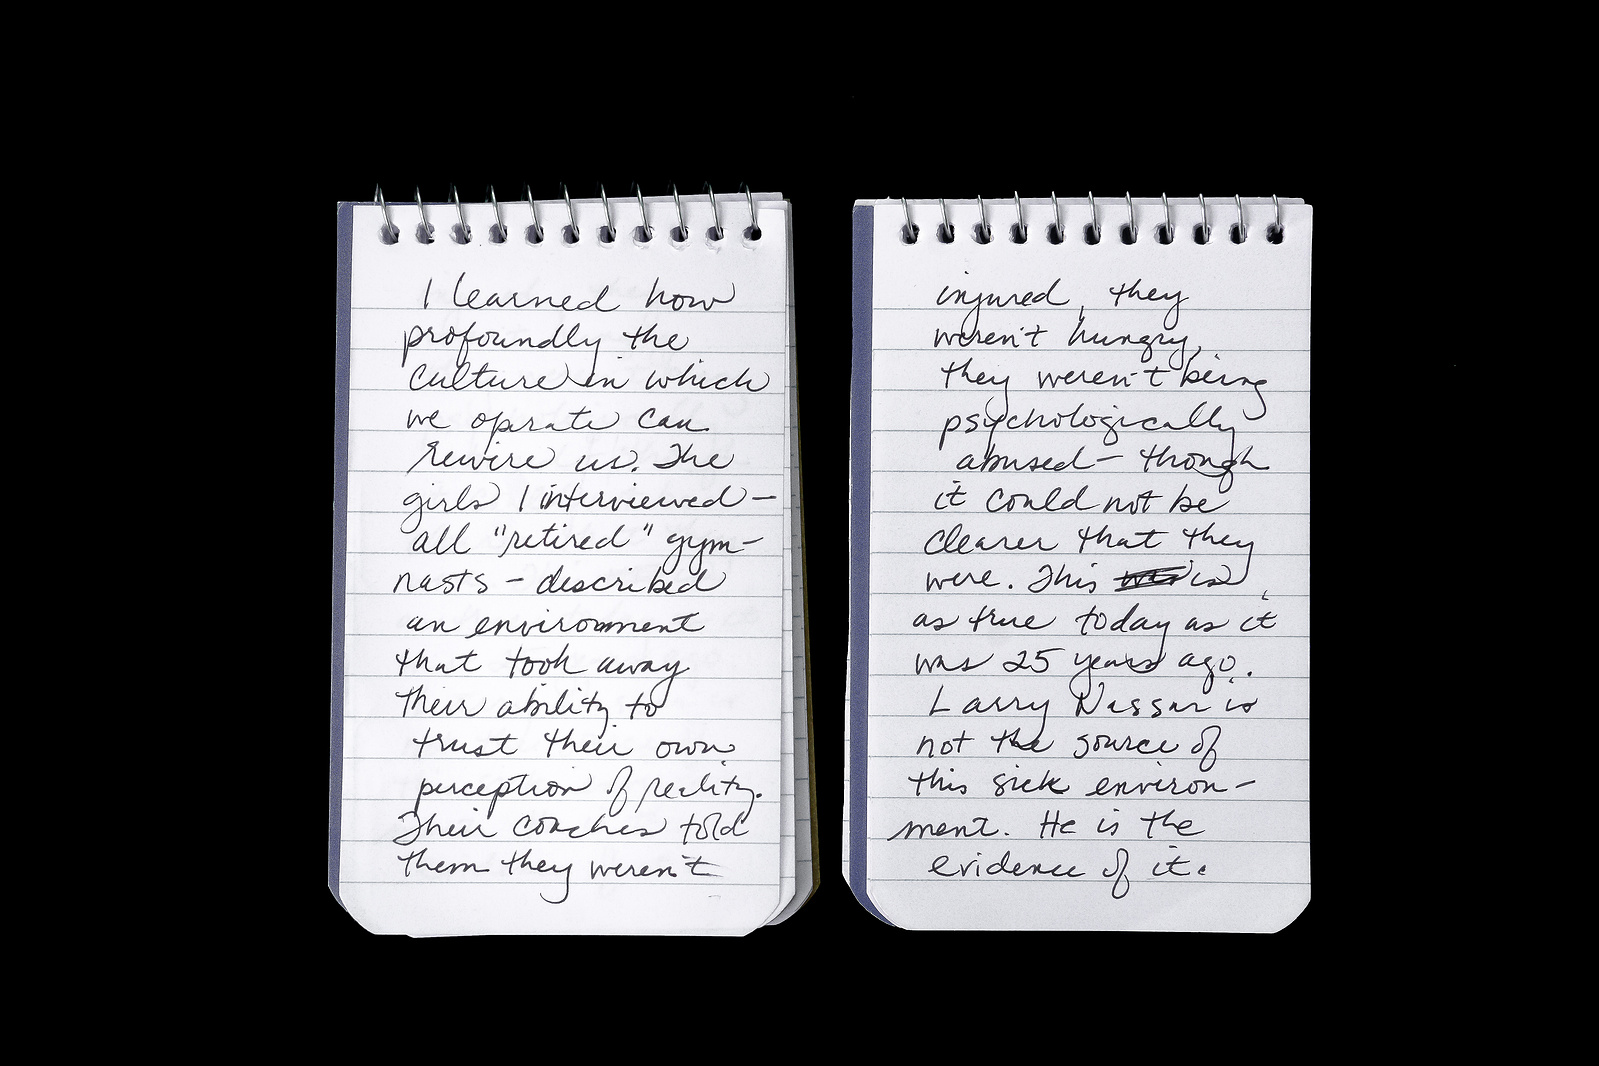 I learned how
profoundly the
culture in which
we operate can
rewire us. The
girls I interviewed —
all "retired" gym-
nasts — described
an environment
that took away
their ability to
trust their own
perception of reality.
Their coaches told
them they weren't
injured, they
weren't hungry,
they weren't being
psychologically
abused — though
it could not be
clearer that they
were. This is
as true today as it
was 25 years ago.
Larry Nassar is
not the source of
this sick environ-
ment. He is the
evidence of it.